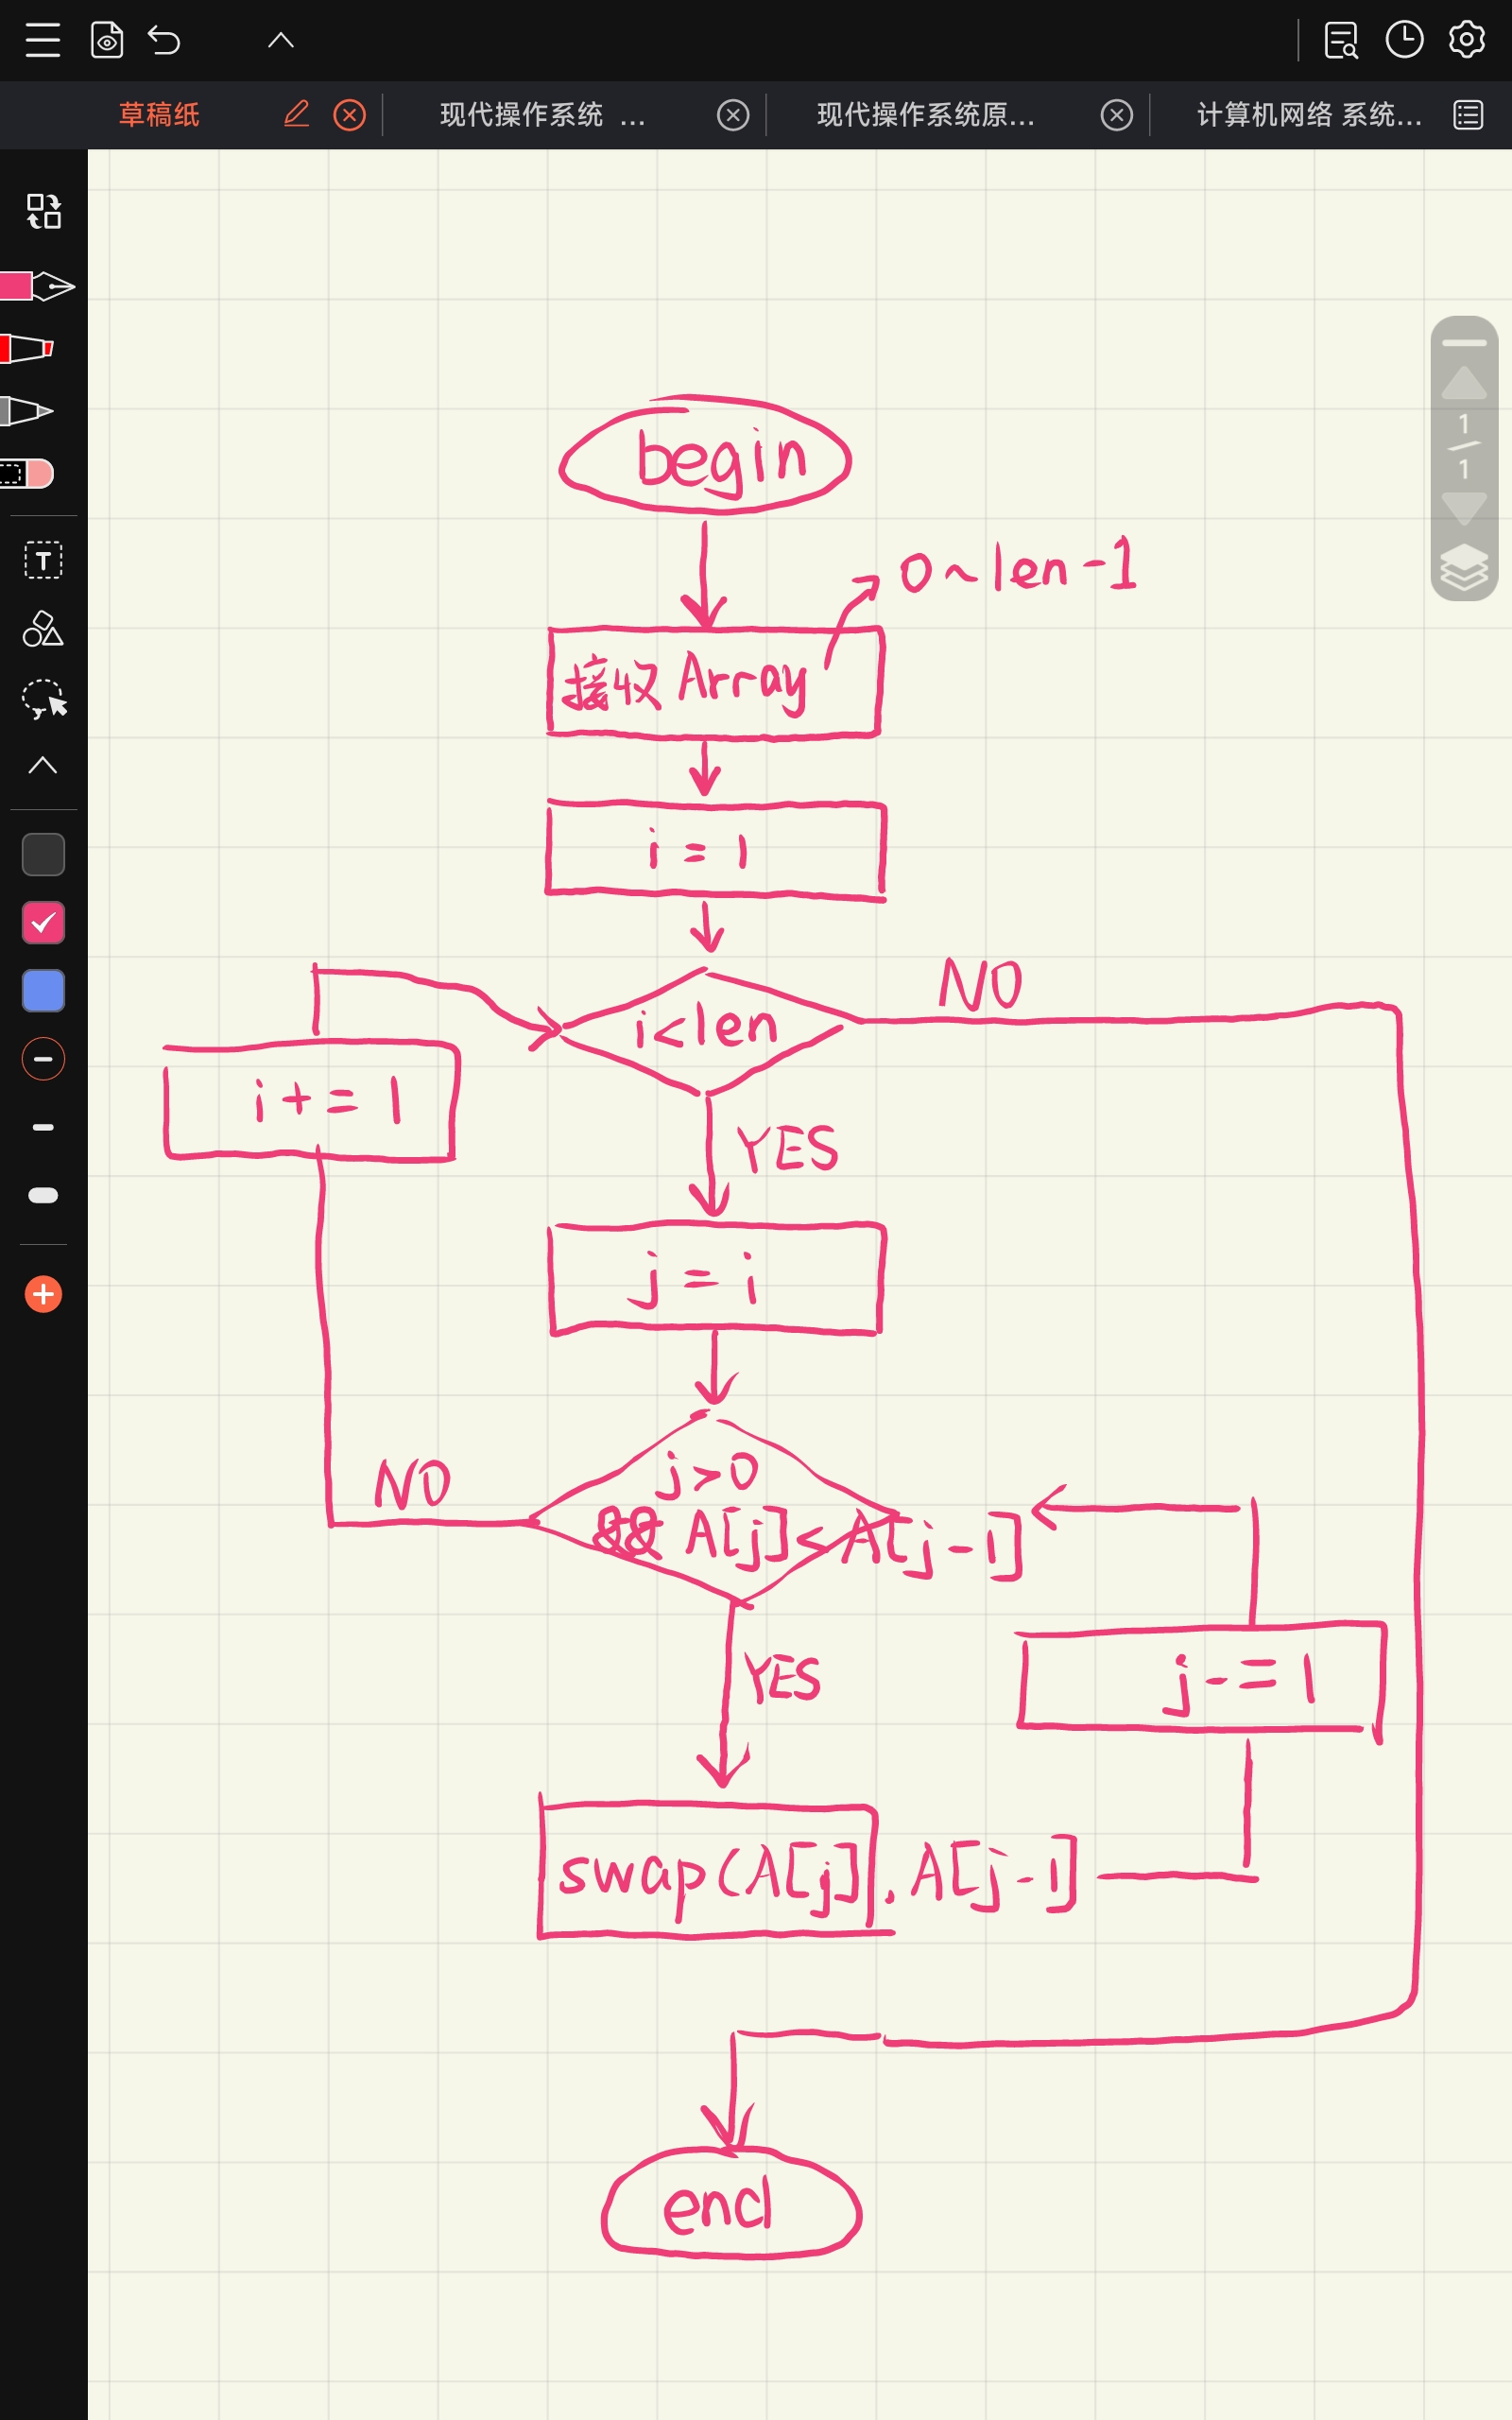 草稿纸
现代操作系统 ...
现代操作系统原...
计算机网络 系统...
T
1
1
begin
0~len-1
接收 Array
i = 1
i<len
NO
i += 1
YES
j = i
j>0
NO
&& A[j]<A[j-1]
YES
j -= 1
swap(A[j].A[j-1]
end